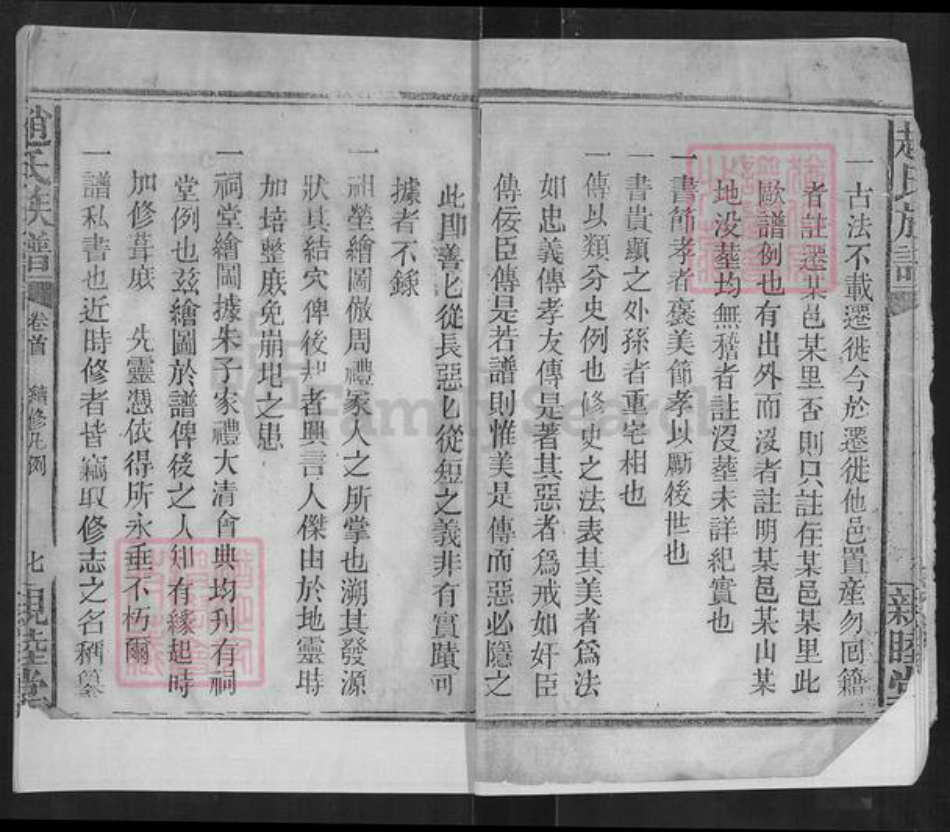 趙氏族譜
親睦堂
一古法不載遷徙今於遷徙他邑置產勿囘籍
者註遷某邑某里否則只註住某邑某里此
歐譜例也有出外而沒者註明某邑某山某
地没塟均無稽者註沒塟未詳紀實也
一書節孝者褒美節孝以勵後世也
一書貴顯之外孫者重宅相也
一傳以類分史例也修史之法表其美者爲法
如忠義傳孝友傳是著其惡者爲戒如奸臣
傳佞臣傳是若譜則惟美是傳而惡必隱之
此即善善從長惡惡從短之義非有實蹟可
據者不錄
一祖塋繪圖倣周禮冢人之所掌也溯其發源
狀其結穴俾後起者興言人傑由於地靈時
加培整庶免崩圮之患
一祠堂繪圖據朱子家禮大清會典均刋有祠
堂例也茲繪圖於譜俾後之人知有緣起時
加修葺庶 先靈憑依得所永垂不朽爾
一譜私書也近時修者皆竊取修志之名稱纂
趙氏族譜
卷首
續修凡例
七
親睦堂
FamilySearch